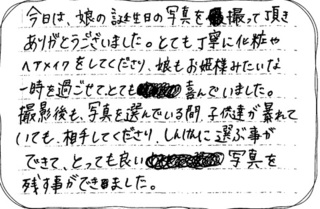 今日は、娘の誕生日の写真を撮って頂き
ありがとうございました。とても丁寧に化粧や
ヘアメイクをしてくださり、娘もお姫様みたいな
一時を過ごせてとても喜んでいました。
撮影後も、写真を選んでいる間、子供達が暴れて
いても、相手してくださり、しんけんに選ぶ事が
できて、とっても良い写真を
残す事ができました。